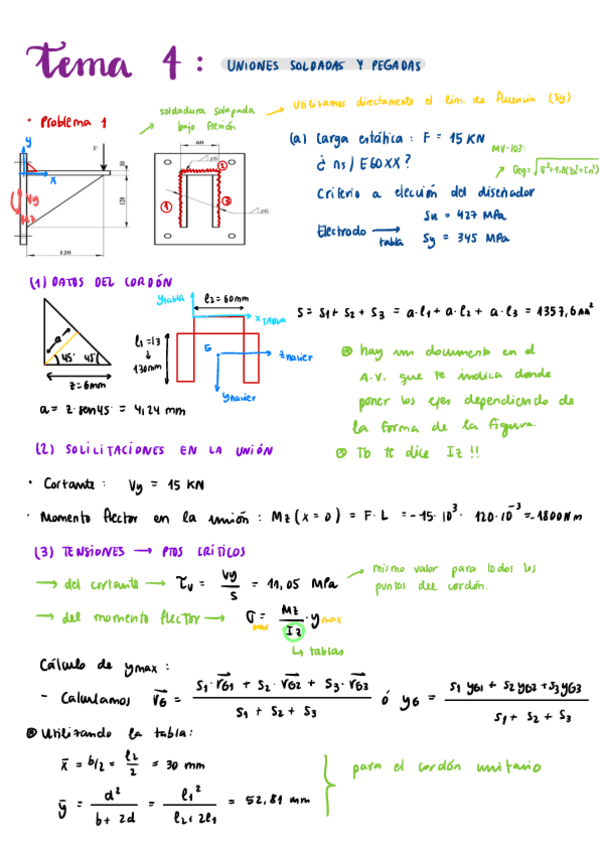 Tema 4: UNIONES SOLDADAS Y PEGADAS
• Problema 1
soldadura solapada bajo flexión
→ Utilizamos directamente el lím. de fluencia (Sy)
(a) Carga estática: F = 15 KN
¿ ns / E60XX?
MV-103:
Criterio a elección del diseñador
Su = 427 MPa
Electrodo → tabla Sy = 345 MPa
y
x
Vy
Mz
F
120
1
2
3
(1) DATOS DEL CORDÓN
a
45° 45°
z = 6mm
a = z·sen45 = 4,24 mm
y TABLA
l2 = 60mm
x TABLA
l1 = l3
↓
130mm
G
z navier
y navier
S = S1 + S2 + S3 = a·l1 + a·l2 + a·l3 = 1357,6 mm²
⊛ hay un documento en el
A.V. que te indica donde
poner los ejes dependiendo de
la forma de la figura.
⊛ Tb te dice Iz !!
(2) SOLILITACIONES EN LA UNIÓN
• Cortante: Vy = 15 KN
• Momento flector en la unión: Mz (x = 0) = F·L = -15·10³ · 120·10⁻³ = -1800 Nm
(3) TENSIONES → PTOS CRÍTICOS
→ del cortante → τv = Vy / S = 11,05 MPa
→ mismo valor para todos los
puntos del cordón.
→ del momento flector → σmax = Mz / Iz · ymax
↳ tablas
Cálculo de ymax:
- Calculamos rG = (S1·rG1 + S2·rG2 + S3·rG3) / (S1 + S2 + S3) ó yG = (S1 yG1 + S2 yG2 + S3 yG3) / (S1 + S2 + S3)
⊛ Utilizando la tabla:
x̄ = b/2 = l2 / 2 = 30 mm
ȳ = d² / (b + 2d) = l1² / (l2 + 2l1) = 52,81 mm
para el cordón unitario